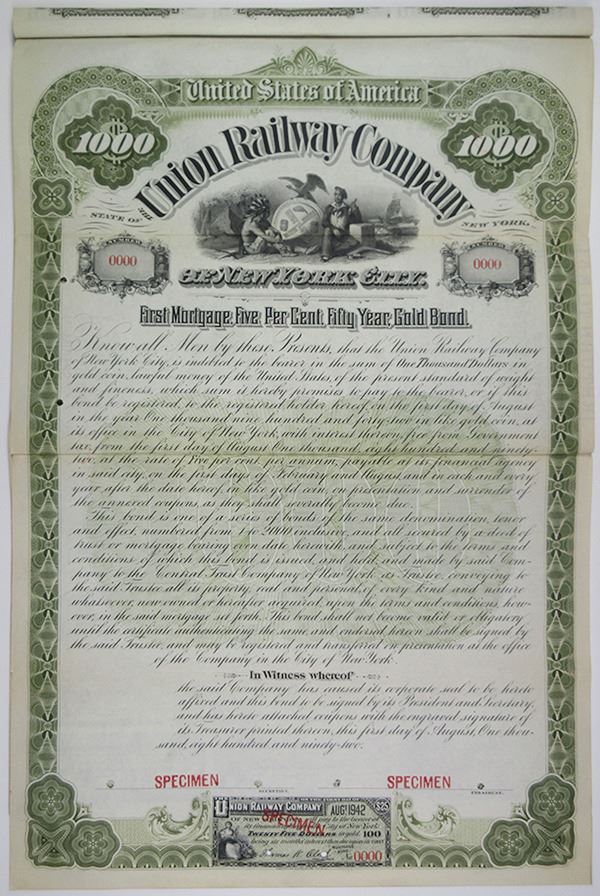 United States of America
$1000
$1000
The Union Railway Company
STATE OF
NEW YORK.
NUMBER
0000
NUMBER
0000
OF NEW YORK CITY.
First Mortgage, Five Per Cent, Fifty Year, Gold Bond.
Know all Men by these Presents, that the Union Railway Company
of New York City, is indebted to the bearer in the sum of One Thousand Dollars in
gold coin, lawful money of the United States, of the present standard of weight
and fineness, which sum it hereby promises to pay to the bearer, or if this
bond be registered, to the registered holder hereof, on the first day of August
in the year One thousand nine hundred and forty-two in like gold coin, at
its office in the City of New York, with interest thereon, free from Government
tax, from the first day of August One thousand, eight hundred, and ninety-
two, at the rate of five per cent. per annum, payable at its financial agency
in said city, on the first days of February and August, and in each and every
year after the date hereof, in like gold coin, on presentation and surrender of
the annexed coupons, as they shall severally become due.
This bond is one of a series of bonds of the same denomination, tenor
and effect, numbered from 1 to 2000 inclusive, and all secured by a deed of
trust or mortgage bearing even date herewith, and subject to the terms and
conditions of which this bond is issued, and held, and made by said Com-
pany to the Central Trust Company of New York, as Trustee, conveying to
the said Trustee all its property, real and personal, of every kind and nature
whatsoever, now owned or hereafter acquired, upon the terms and conditions, how-
ever, in the said mortgage set forth. This bond shall not become valid or obligatory
until the certificate authenticating the same, and endorsed hereon shall be signed by
the said Trustee, and may be registered and transferred on presentation at the office
of the Company in the City of New York.
In Witness whereof
the said Company has caused its corporate seal to be hereto
affixed and this bond to be signed by its President and Secretary,
and has hereto attached coupons with the engraved signature of
its Treasurer printed thereon, this first day of August, One thou-
sand, eight hundred and ninety-two.
SPECIMEN
SPECIMEN
SECRETARY.
PRESIDENT.
UNION RAILWAY COMPANY
AUG. 1942
$25
OF NEW
pay to the bearer at
City of New York
TWENTY FIVE DOLLARS in gold
100
being six months interest then due upon its
SPECIMEN
0000